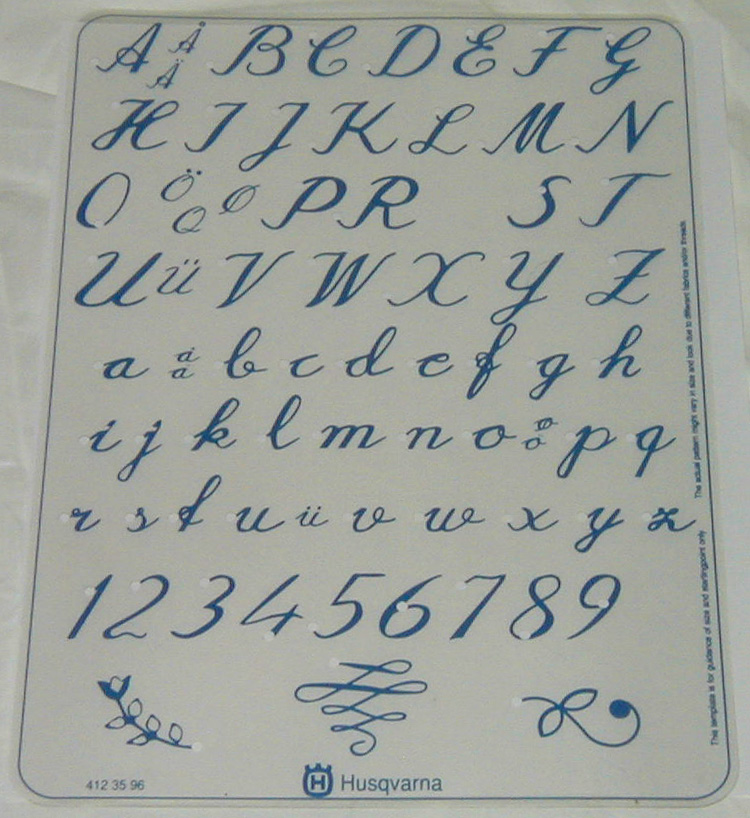 A Å Ä B C D E F G
H I J K L M N
O Ö Q Ø P R S T
U ü V W X Y Z
a å ä b c d e f g h
i j k l m n o ø ö p q
r s t u ü v w x y z
1 2 3 4 5 6 7 8 9
412 35 96
Husqvarna
This template is for guidance of size and startingpoint only
The actual pattern might vary in size and look due to different fabrics and/or threads